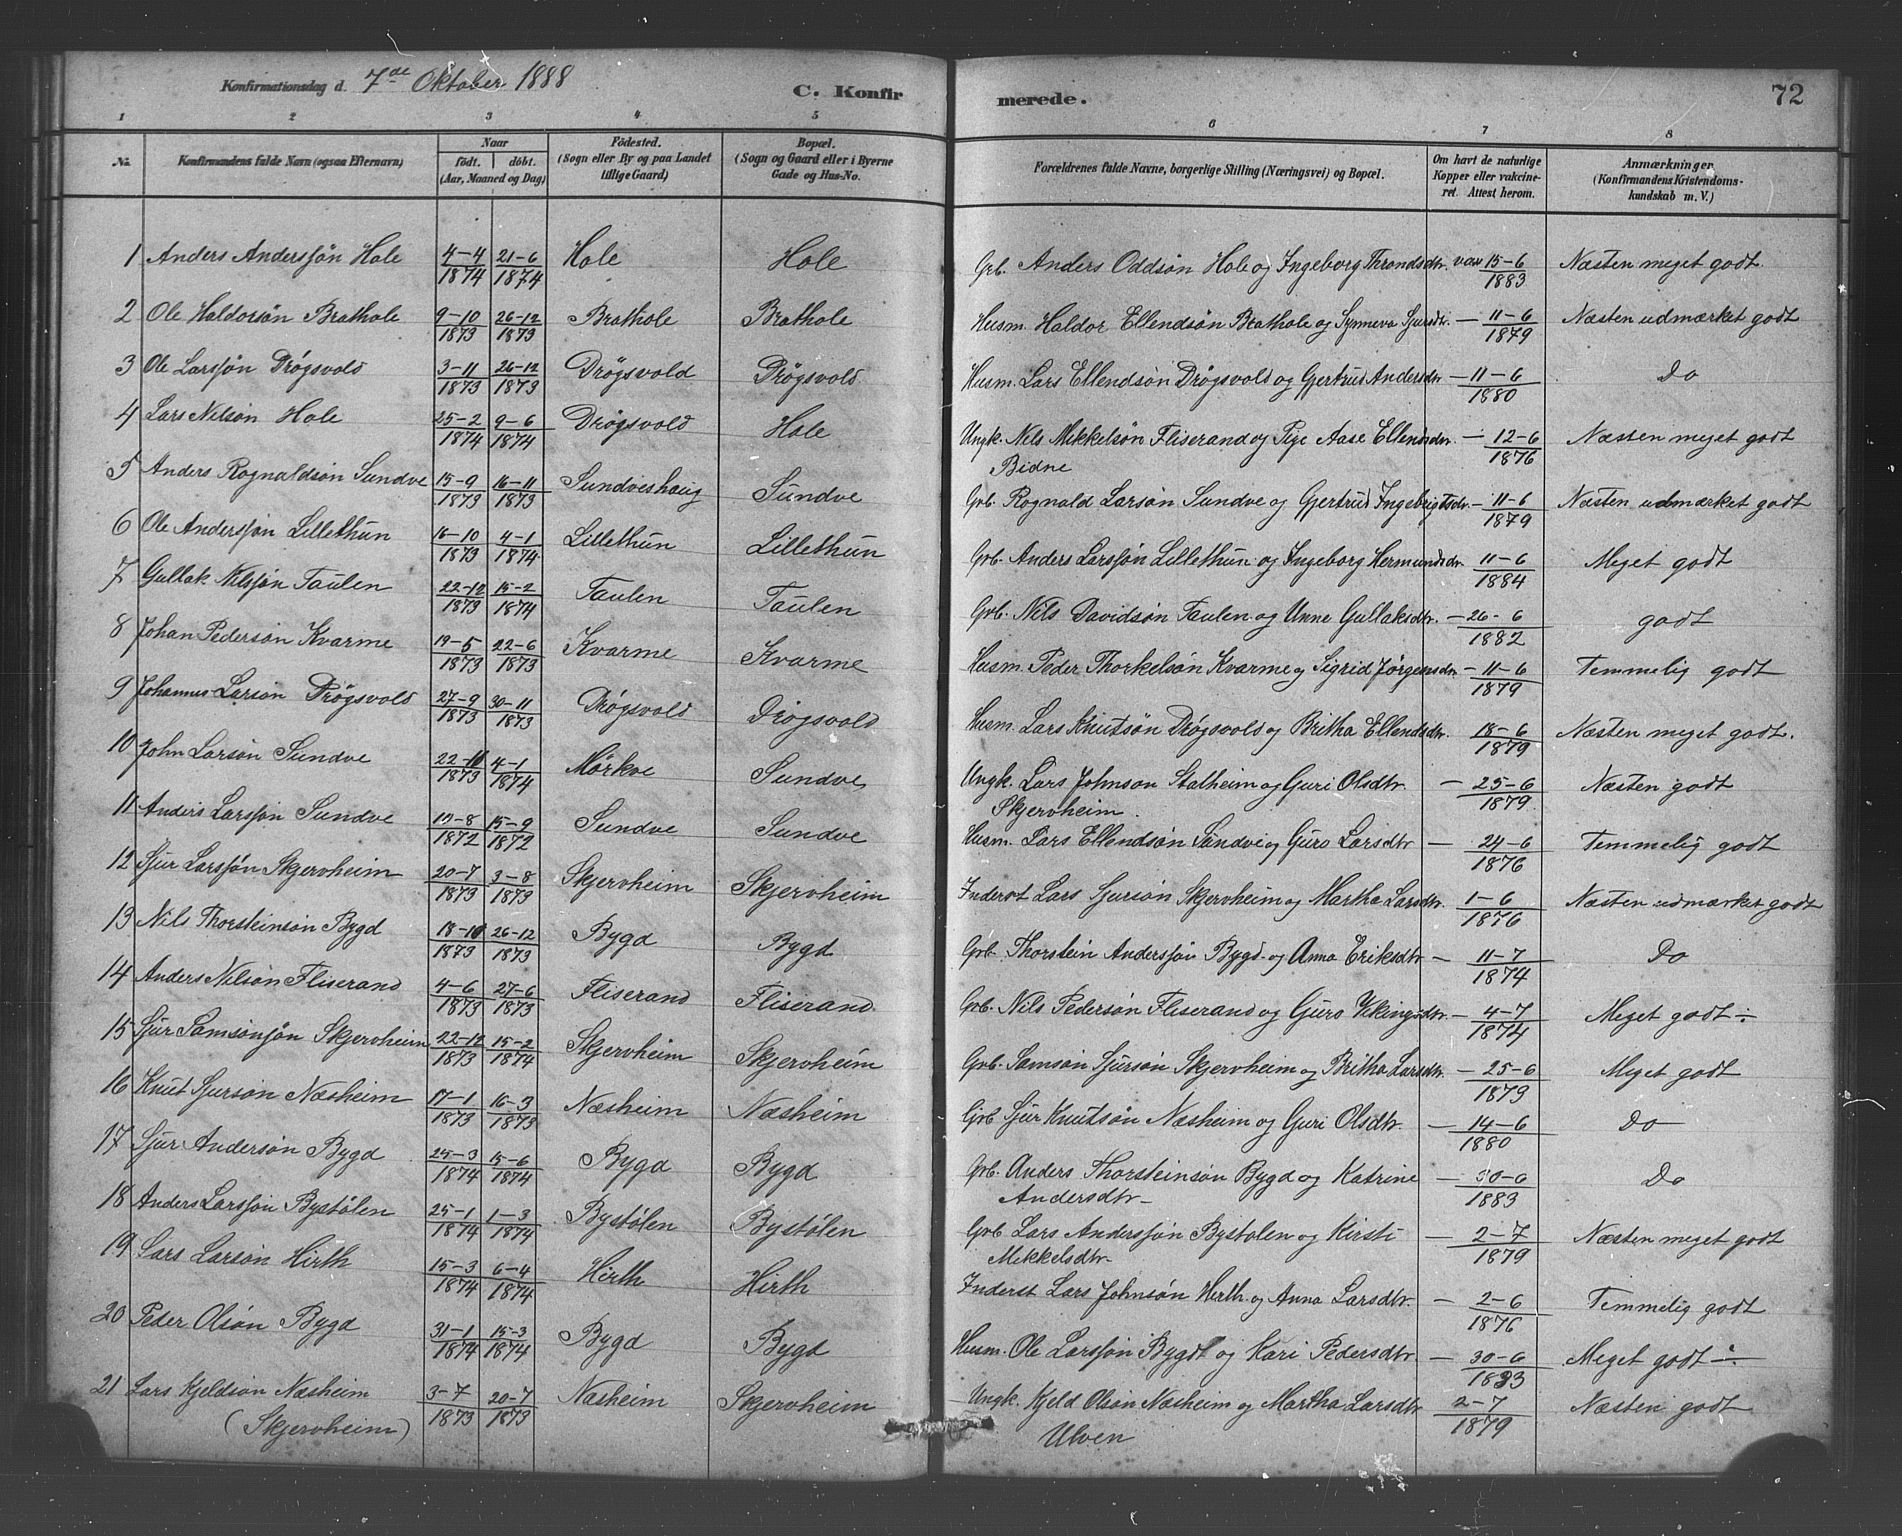 Konfirmationsdag d. 7de Oktober 1888 C. Konfirmerede. 72
1 2 3 4 5 6 7 8
No. Konfirmandens fulde Navn (ogsaa Efternavn) Naar født. døbt. (Aar, Maaned og Dag) Fødested. (Sogn eller By og paa Landet tillige Gaard) Bopæl. (Sogn og Gaard eller i Byerne Gade og Hus-No. Forældrenes fulde Navne, borgerlige Stilling (Næringsvei) og Bopæl. Om havt de naturlige Kopper eller vakcineret. Attest herom. Anmærkninger (Konfirmandens Kristendomskundskab m. V.)
1 Anders Andersøn Hole 4-4 1874 21-6 1874 Hole Hole Grb. Anders Oddsøn Hole og Ingeborg Throndsdtr. vax 15-6 1883 Næsten meget godt.
2 Ole Haldorsøn Brathole 9-10 1873 26-12 1873 Brathole Brathole Husm. Haldor Ellendsøn Brathole og Synneva Sjursdtr. — 11-6 1879 Næsten udmærket godt
3 Ole Larssøn Drøgsvold 3-11 1873 26-12 1873 Drøgsvold Drøgsvold Husm. Lars Ellendsøn Drøgsvold og Gjertrud Andersdtr — 11-6 1880 Do
4 Lars Nilsøn Hole 25-2 1874 9-6 1874 Drøgsvold Hole Ungk. Nils Mikkelsøn Fliserand og Pige Aase Ellendsdtr — 12-6 1876 Næsten meget godt
Bidne
5 Anders Rognaldsøn Sundve 15-9 1873 16-11 1873 Sundveshaug Sundve Grb. Rognald Larsøn Sundve og Gjertrud Ingebrigtsdtr — 11-6 1879 Næsten udmærket godt
6 Ole Anderssøn Lillethun 16-10 1873 4-1 1874 Lillethun Lillethun Grb. Anders Larssøn Lillethun og Ingeborg Hermundsdtr. 11-6 1884 Meget godt
7 Gullak Nilssøn Taulen 22-12 1873 15-2 1874 Taulen Taulen Grb. Nils Davidsøn Taulen og Unne Gullaksdtr. — 26-6 1882 godt
8 Johan Pedersøn Kvarme 19-5 1873 22-6 1873 Kvarme Kvarme Husm. Peder Thorkelsøn Kvarme og Sigrid Jørgensdtr — 11-6 1879 Temmelig godt
9 Johannes Larsøn Drøgsvold 27-9 1873 30-11 1873 Drøgsvold Drøgsvold Husm. Lars Knutsøn Drøgsvold og Britha Ellendsdtr. 18-6 1879 Næsten meget godt.
10 John Larsøn Sundve 22-11 1873 4-1 1874 Mørkve Sundve Ungk. Lars Johnson Stalheim og Guri Olsdtr. — 25-6 1879. Næsten godt
Skjervheim.
11 Anders Larssøn Sundve 17-8 1872 15-9 1872 Sundve Sundve Husm. Lars Ellendsøn Sundve og Guro Larsdtr — 24-6 1876 Temmelig godt
12 Sjur Larssøn Skjervheim 20-7 1873 3-8 1873 Skjervheim Skjervheim Inderst Lars Sjursøn Skjervheim og Martha Larsdtr. 1-6 1876 Næsten udmærket godt
13 Nils Thorsteinsøn Bygd 18-10 1873 26-12 1873 Bygd Bygd Grb. Thorstein Anderssøn Bygd og Anna Eriksdtr — 11-7 1874 Do
14 Anders Nilsøn Fliserand 4-6 1873 27-6 1873 Fliserand Fliserand Grb. Nils Pedersøn Fliserand og Guro Vikingsdtr. — 4-7 1874 Meget godt ÷
15 Sjur Samsonsøn Skjervheim 22-12 1873 15-2 1874 Skjervheim Skjervheim Grb. Samson Sjursøn Skjervheim og Britha Larsdtr — 25-6 1879 Meget godt
16 Knut Sjursøn Næsheim 17-1 1873 16-3 1873 Næsheim Næsheim Grb Sjur Knutsøn Næsheim og Guri Olsdtr. — 14-6 1880 Do
17 Sjur Andersøn Bygd 25-3 1874 15-6 1874 Bygd Bygd Grb. Anders Thorsteinsøn Bygd og Katrine — 30-6 1883 Do
Andersdtr
18 Anders Larssøn Bystølen 25-1 1874 1-3 1874 Bystølen Bystølen Grb Lars Anderssøn Bystølen og Kirsti — 2-7 1879 Næsten meget godt
Mikkelsdtr.
19 Lars Larsøn Hirth 15-3 1874 6-4 1874 Hirth Hirth Inderst Lars Johnsøn Hirth og Anna Larsdtr. — 2-6 1876 Temmelig godt
20 Peder Olsøn Bygd 31-1 1874 15-3 1874 Bygd Bygd Husm. Ole Larssøn Bygd og Kari Pedersdtr. — 30-6 1883 Meget godt ÷
21 Lars Kjeldsøn Næsheim 3-7 1873 20-7 1873 Næsheim Skjervheim Ungk. Kjeld Olsøn Næsheim og Martha Larsdtr 2-7 1879 Næsten godt
(Skjervheim) Ulven